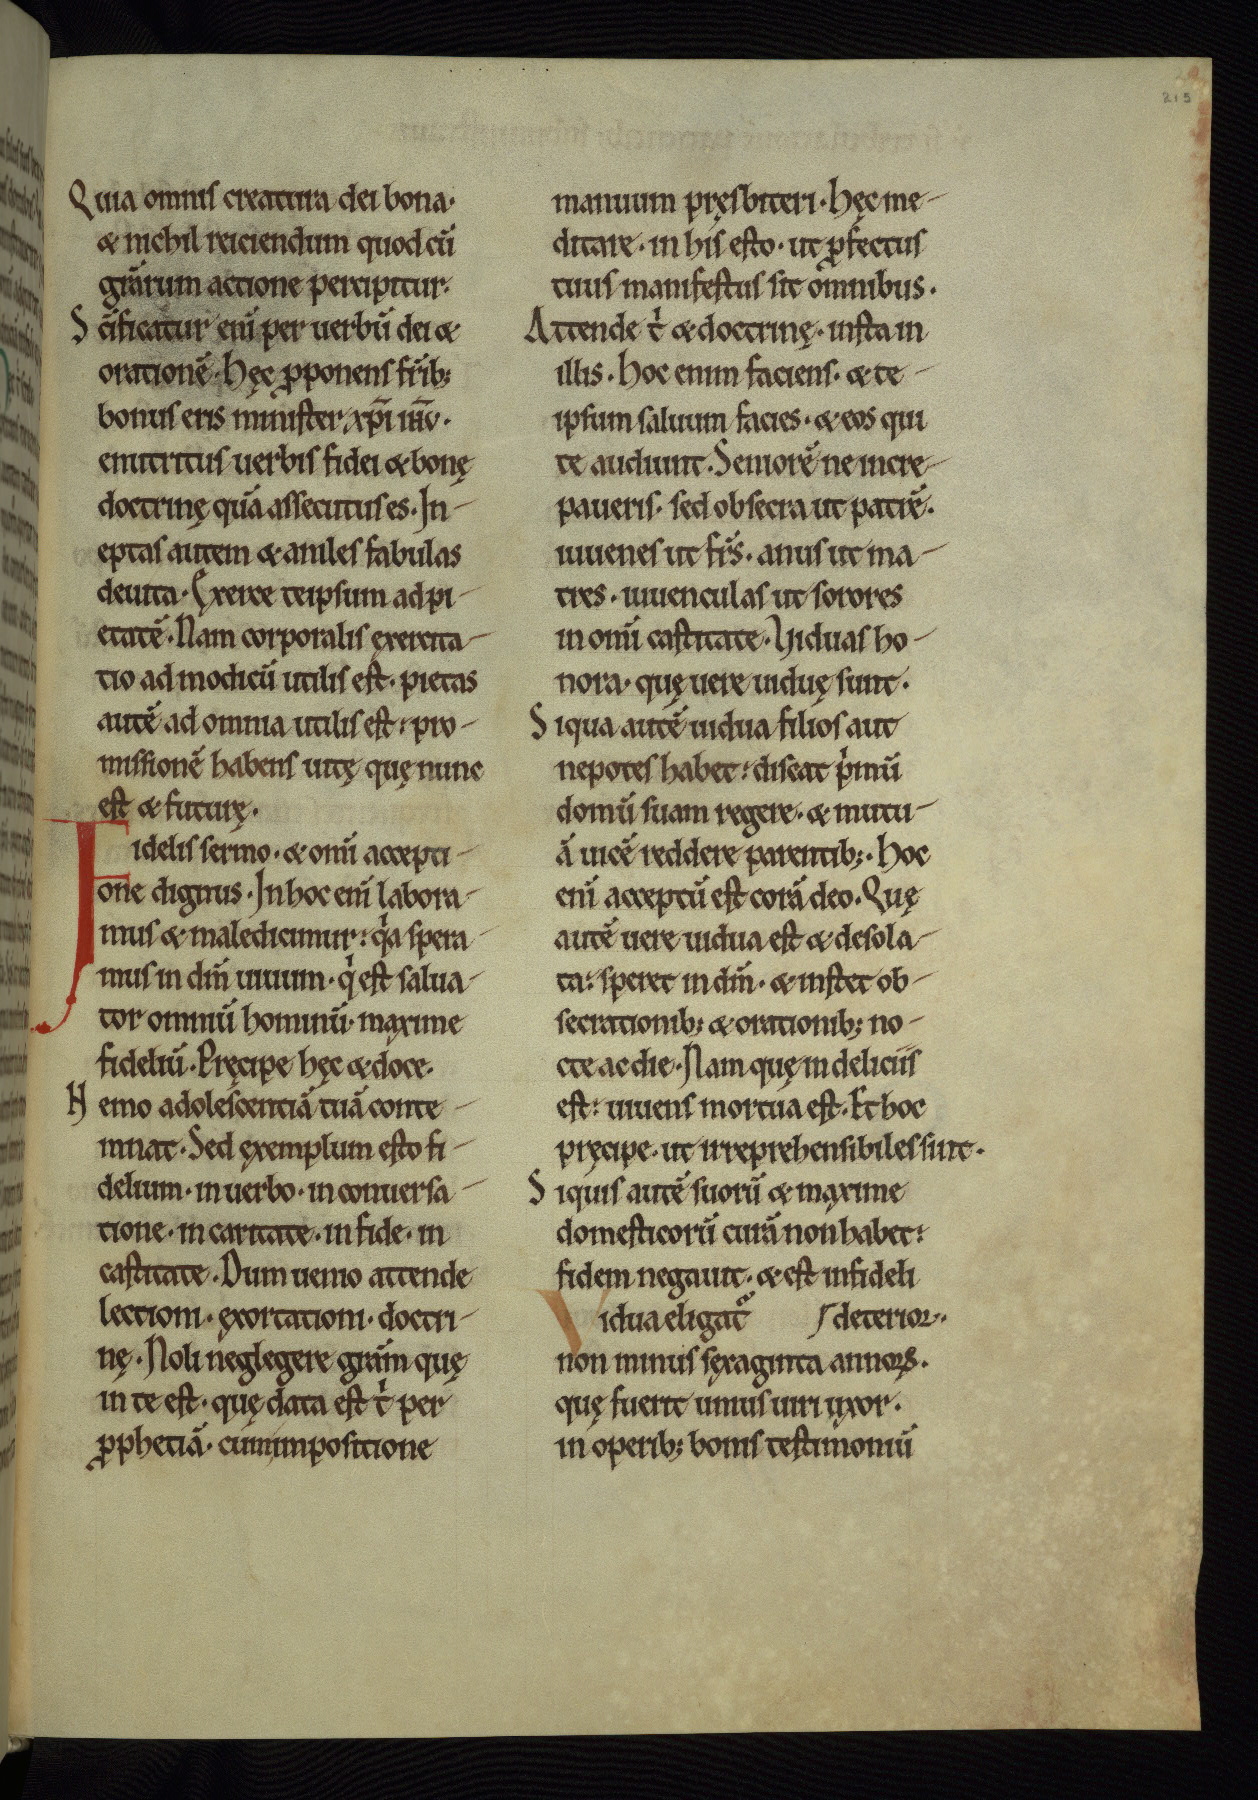 215
Quia omnis creatura dei bona·
& nichil reiciendum quod cū
gr̄arum actione percipitur·
Sc̄ificatur enī per uerbū dei &
orationē· Hęc ꝓponens fr̄ib;
bonus eris minister xp̄i ih̄u·
enutritus uerbis fidei & bonę
doctrinę quā assecutus es· In-
eptas autem & aniles fabulas
deuita· Exerce teipsum ad pi-
etatē· Nam corporalis ęxercita-
tio ad modicū utilis est· pietas
autē ad omnia utilis est· pro-
missionē habens uitę quę nunc
est & futurę·
Fidelis sermo· & omī accepti-
one dignus· In hoc enī labora-
mus & maledicimur· qͥa spera-
mus in dm̄ uiuum· qͥ est salua-
tor omniū hominū· maxime
fideliū· Pręcipe hęc & doce·
Nemo adolescentiā tuā conte-
mnat· Sed ęxemplum esto fi-
delium· in uerbo· in conuersa-
tione· in caritate· in fide· in
castitate· Dum uenio attende
lectioni· ęxortationi· doctri-
nę· Noli neglegere gr̄am quę
in te est· quę data est tͥ per
ꝓphetiā· cum impositione
manuum pręsbiteri· Hęc me-
ditare· in his esto· ut ꝓfectus
tuus manifestus sit omnibus·
Attende tͥ & doctrinę· insta in
illis· Hoc enim faciens· & te-
ipsum saluum facies· & eos qui
te audiunt· Seniorē ne incre-
paueris· sed obsecra ut patrē·
iuuenes ut fr̄s· anus ut ma-
tres· iuuenculas ut sorores
in omī castitate· Uiduas ho-
nora· quę uere uiduę sunt·
Siqua autē uidua filios aut
nepotes habet· discat pͥmū
domū suam regere· & mutu-
ā uicē reddere parentib;· Hoc
enī acceptū est corā deo· Quę
autē uere uidua est & desola-
ta· speret in dm̄· & instet ob-
secrationib; & orationib; no-
cte ac die· Nam quę in deliciis
est· uiuens mortua est· Et hoc
pręcipe· ut irreprehensibiles sint·
Siquis autē suorū & maxime
domesticorū curā non habet·
fidem negauit· & est infideli
Uidua eligat᷑ deterior·
non minus sęxaginta annoꝝ·
quę fuerit unius uiri uxor·
in operib; bonis testimoniū